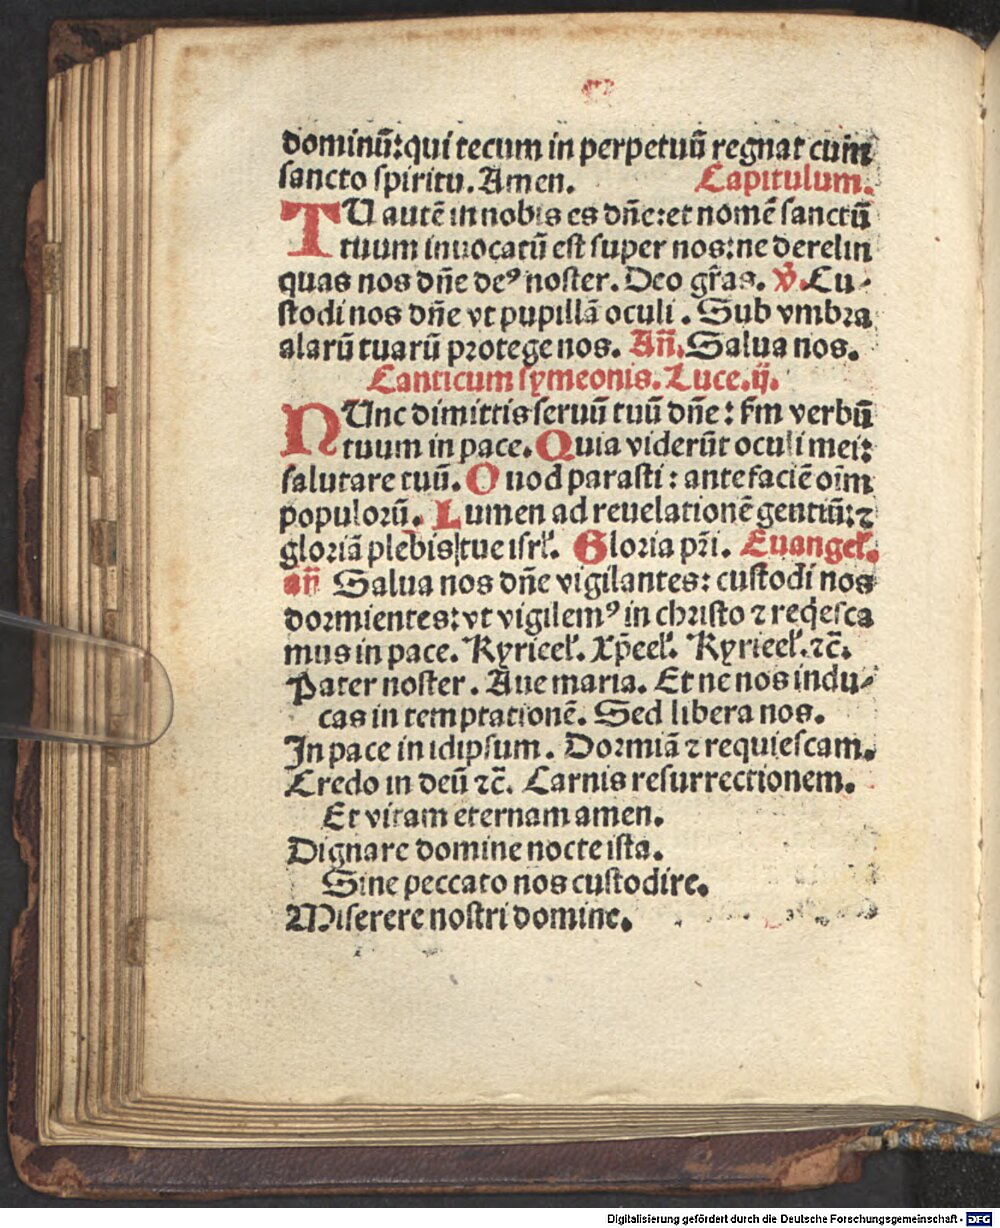 dominū: qui tecum in perpetuū regnat cum
sancto spiritu. Amen. Capitulum.
TU autē in nobis es dn̄e: et nomē sanctū
tuum inuocatū est super nos: ne derelin
quas nos dn̄e deꝰ noster. Deo gr̄as. ℣. Cu⸗
stodi nos dn̄e vt pupillā oculi. Sub vmbra
alarū tuarū protege nos. Añ. Salua nos.
Canticum symeonis. Luce. ij.
NUnc dimittis seruū tuū dn̄e: ẜm verbū
tuum in pace. Quia viderūt oculi mei:
salutare tuū. Quod parasti: ante faciē oīm
populorū. Lumen ad reuelationē gentiū: ⁊
gloriā plebis tue isrł. Gloria pr̄i. Euangeł.
añ Salua nos dn̄e vigilantes: custodi nos
dormientes: vt vigilemꝰ in christo ⁊ reqͥesca
mus in pace. Kyrieeł. Xp̄eeł. Kyrieeł. ⁊c̄.
Pater noster. Aue maria. Et ne nos indu⸗
cas in temptationē. Sed libera nos.
In pace in idipsum. Dormiā ⁊ requiescam.
Credo in deū ⁊c̄. Carnis resurrectionem.
Et vitam eternam amen.
Dignare domine nocte ista.
Sine peccato nos custodire.
Miserere nostri domine.
Digitalisierung gefördert durch die Deutsche Forschungsgemeinschaft - DFG